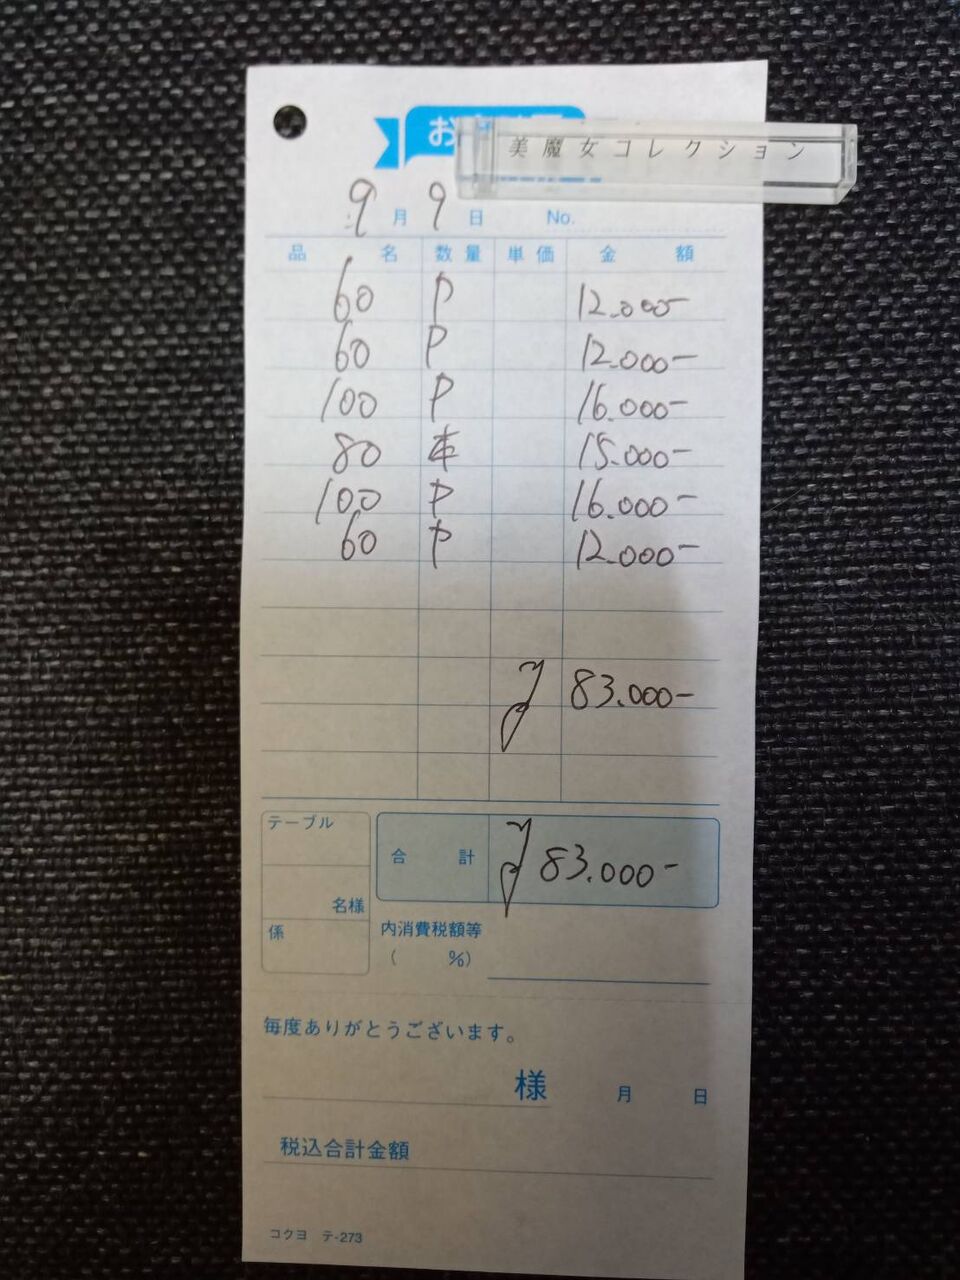 美魔女コレクション
9月 9日 No.
品名 数量 単価 金額
60 P 12.000-
60 P 12.000-
100 P 16.000-
80 本 15.000-
100 P 16.000-
60 P 12.000-
83.000-
テーブル
合計 83.000-
名様
係
内消費税額等
( %)
毎度ありがとうございます。
様 月 日
税込合計金額
コクヨ テ-273